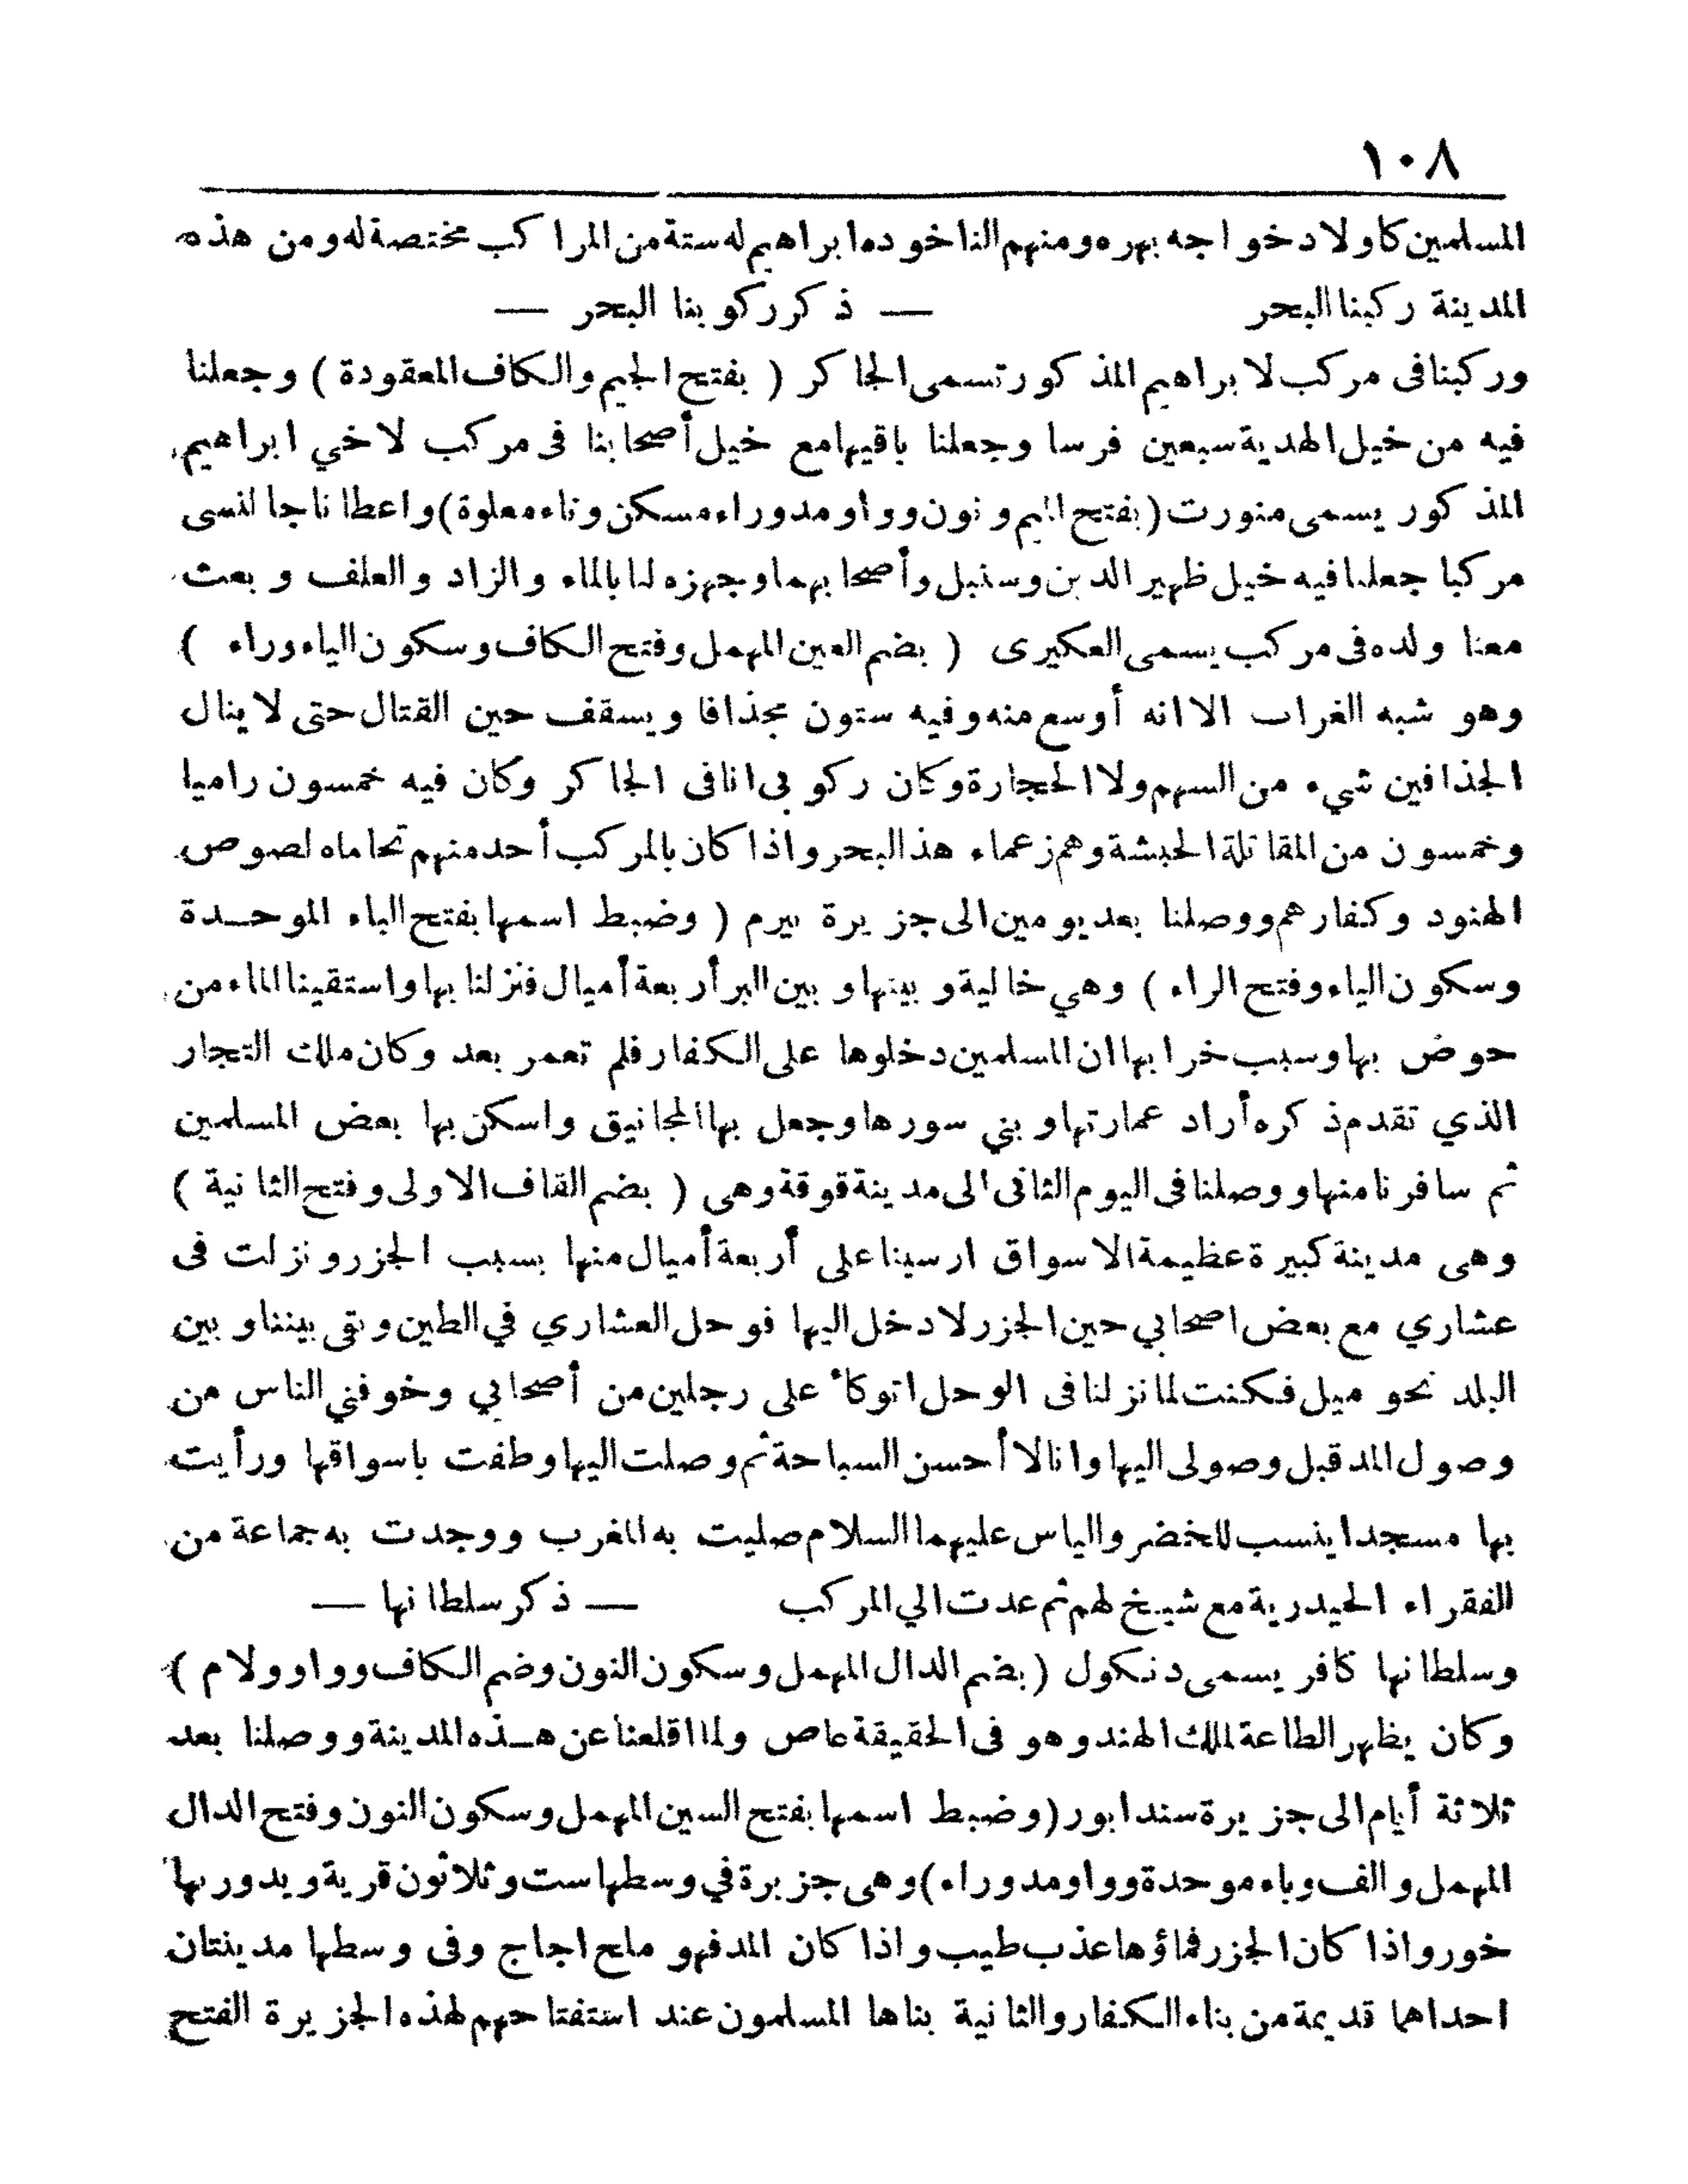 ١٠٨
المسلمين كاولاد خواجه بهره ومنهم الناخوده ابراهيم له ستة من المراكب مختصة له ومن هذه
المدينة ركبنا البحر — ذكر ركوبنا البحر —
وركبنا فى مركب لابراهيم المذكور تسمى الجاكر ( بفتح الجيم والكاف المعقودة ) وجعلنا
فيه من خيل الهدية سبعين فرسا وجعلنا باقيها مع خيل أصحابنا فى مركب لاخي ابراهيم
المذكور يسمى منورت (بفتح الميم ونون وواو مد وراء مسكن وتاء معلوة) واعطانا جالنسى
مركبا جعلنا فيه خيل ظهير الدين وسنبل وأصحابهما وجهزه لنا بالماء والزاد والعلف وبعث
معنا ولده فى مركب يسمى العكيرى ( بضم العين المهمل وفتح الكاف وسكون الياء وراء )
وهو شبه الغراب الا انه أوسع منه وفيه ستون مجذافا ويسقف حين القتال حتى لا ينال
الجذافين شيء من السهم ولا الحجارة وكان ركوبى انا فى الجاكر وكان فيه خمسون راميا
وخمسون من المقاتلة الحبشة وهم زعماء هذ البحر واذا كان بالمركب أحد منهم تحاماه لصوص
الهنود وكفارهم ووصلنا بعد يومين الى جزيرة بيرم ( وضبط اسمها بفتح الباء الموحدة
وسكون الياء وفتح الراء ) وهي خالية وبينها وبين البر أربعة أميال فنزلنا بها واستقينا الماء من
حوض بها وسبب خرابها ان المسلمين دخلوها على الكفار فلم تعمر بعد وكان ملك التجار
الذي تقدم ذكره أراد عمارتها وبني سورها وجعل بها المجانيق واسكن بها بعض المسلمين
ثم سافرنا منها ووصلنا فى اليوم الثانى الى مدينة قوقة وهى ( بضم القاف الاولى وفتح الثانية )
وهى مدينة كبيرة عظيمة الاسواق ارسينا على أربعة أميال منها بسبب الجزر ونزلت فى
عشاري مع بعض اصحابي حين الجزر لادخل اليها فوحل العشاري في الطين وبقى بيننا وبين
البلد نحو ميل فكنت لما نزلنا فى الوحل اتوكأ على رجلين من أصحابي وخوفني الناس من
وصول المد قبل وصولى اليها وانا لا أحسن السباحة ثم وصلت اليها وطفت باسواقها ورأيت
بها مسجدا ينسب للخضر والياس عليهما السلام صليت به المغرب ووجدت به جماعة من
الفقراء الحيدرية مع شيخ لهم ثم عدت الي المركب — ذكر سلطانها —
وسلطانها كافر يسمى دنكول (بضم الدال المهمل وسكون النون وضم الكاف وواو ولام )
وكان يظهر الطاعة لملك الهند وهو فى الحقيقة عاص ولما اقلعنا عن هذه المدينة ووصلنا بعد
ثلاثة أيام الى جزيرة سندابور (وضبط اسمها بفتح السين المهمل وسكون النون وفتح الدال
المهمل والف وباء موحدة وواو مد وراء) وهى جزيرة في وسطها ست وثلاثون قرية ويدور بها
خور واذا كان الجزر فماؤها عذب طيب واذا كان المد فهو ملح اجاج وفى وسطها مدينتان
احداهما قديمة من بناء الكفار والثانية بناها المسلمون عند استفتاحهم لهذه الجزيرة الفتح